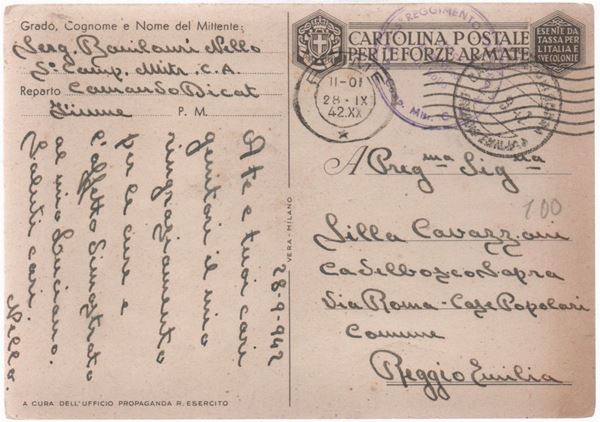 Grado, Cognome e Nome del Mittente:
Serg. Nello
5ª Comp. Mitr. C.A.
Reparto Comando Dicat
Fiume P. M.
CARTOLINA POSTALE
PER LE FORZE ARMATE
ESENTE DA
TASSA PER
L'ITALIA
SUE COLONIE
REGGIMENTO
11-01
28-IX
42.XX
A Preg.ma Sig.na
100
Lilla Cavazzoni
Caselbosco Sopra
Via Roma - Case Popolari
Comune
Reggio Emilia
28-9-942
A te e tuoi cari
genitori il mio
ringraziamento
per le cure e
l'affetto dimostrato
al mio Luciano.
Saluti cari
Nello.
VERA - MILANO
A CURA DELL'UFFICIO PROPAGANDA R. ESERCITO